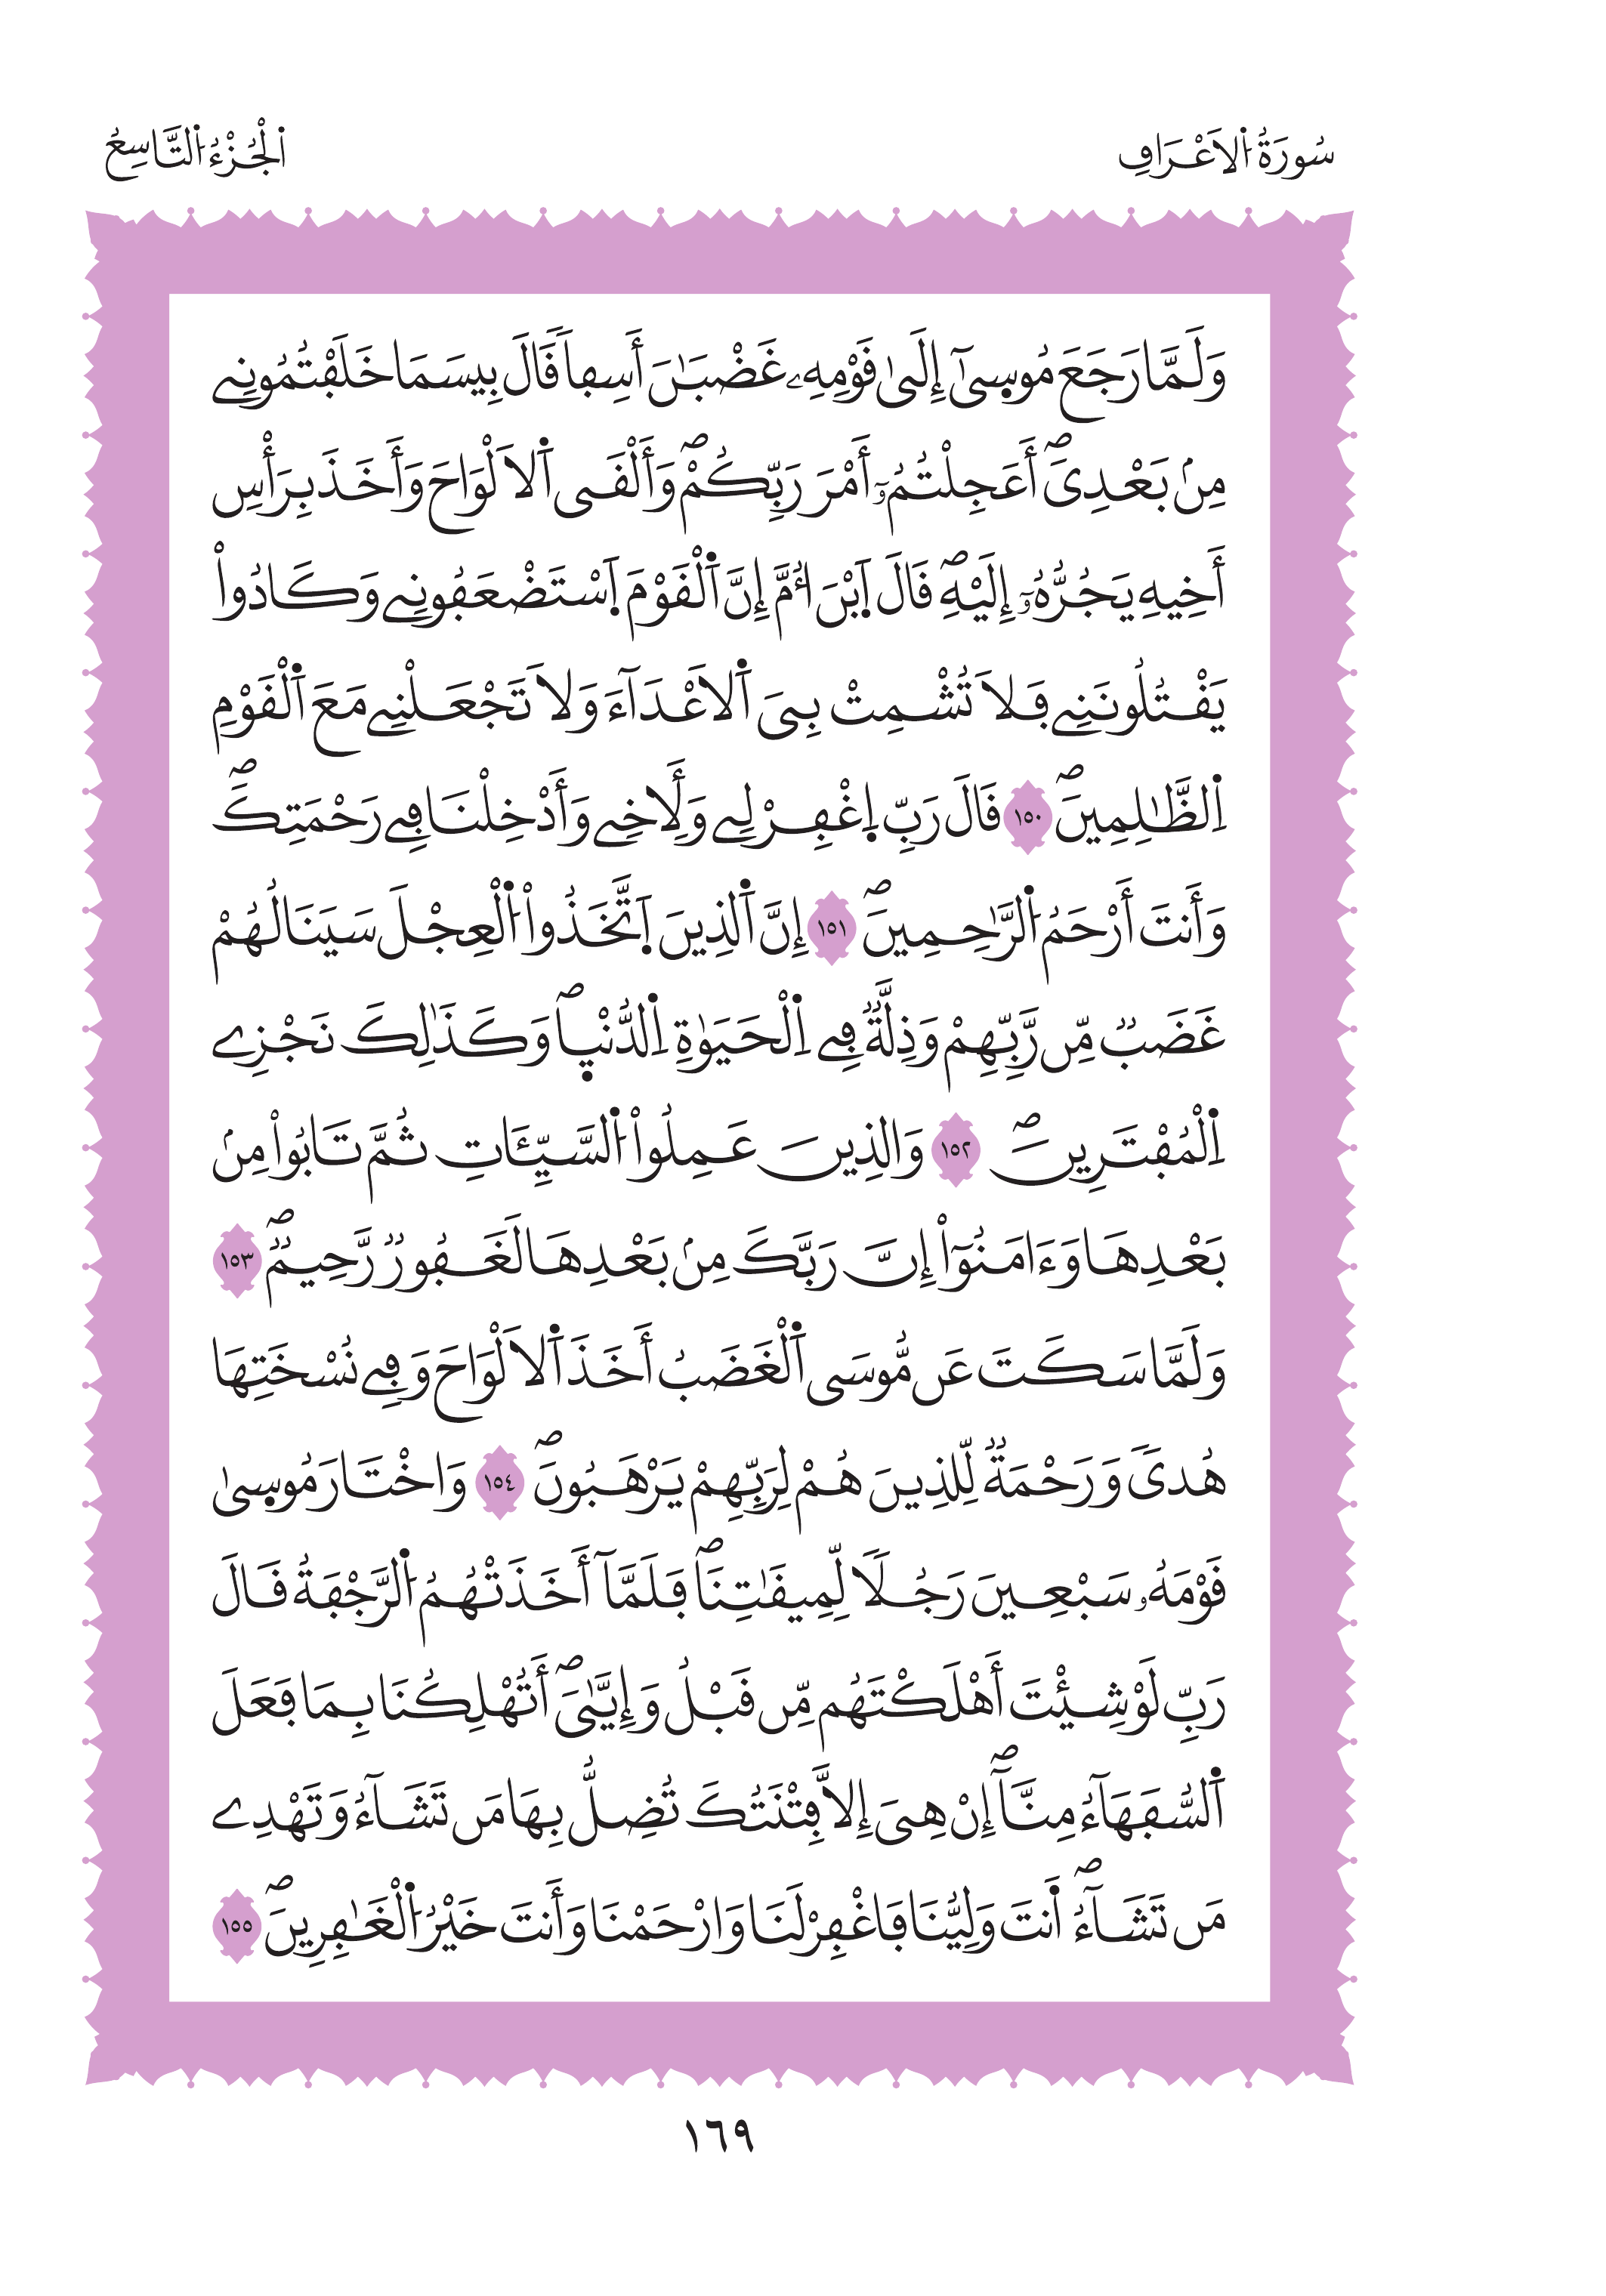 سُورَةُ اُ۬لَاعْرَافِ
اَ۬لْجُزْءُ اُ۬لتَّاسِعُ
وَلَمَّا رَجَعَ مُوس۪يٰٓ إِلَيٰ قَوْمِهِۦ غَضْبَٰنَ أَسِفاٗ قَالَ بِيسَمَا خَلَفْتُمُونِے
مِنۢ بَعْدِيَۖ أَعَجِلْتُمُۥٓ أَمْرَ رَبِّكُمْۖ وَأَلْقَي اَ۬لَالْوَاحَ وَأَخَذَ بِرَأْسِ
أَخِيهِ يَجُرُّهُۥٓ إِلَيْهِۖ قَالَ اَ۪بْنَ أُمَّ إِنَّ اَ۬لْقَوْمَ اَ۪سْتَضْعَفُونِے وَكَادُواْ
يَقْتُلُونَنِے فَلَا تُشْمِتْ بِيَ اَ۬لَاعْدَآءَ وَلَا تَجْعَلْنِے مَعَ اَ۬لْقَوْمِ
اِ۬لظَّٰلِمِينَۖ ١٥٠ قَالَ رَبِّ اِ۪غْفِرْ لِے وَلِأَخِے وَأَدْخِلْنَا فِے رَحْمَتِكَۖ
وَأَنتَ أَرْحَمُ اُ۬لرَّٰحِمِينَۖ ١٥١ إِنَّ اَ۬لذِينَ اَ۪تَّخَذُواْ اُ۬لْعِجْلَ سَيَنَالُهُمْ
غَضَبٞ مِّن رَّبِّهِمْ وَذِلَّةٞ فِے اِ۬لْحَيَوٰةِ اِ۬لدُّنْي۪اۖ وَكَذَٰلِكَ نَجْزِے
اِ۬لْمُفْتَرِينَۖ ١٥٢ وَالذِينَ عَمِلُواْ اُ۬لسَّيِّـَٔاتِ ثُمَّ تَابُواْ مِنۢ
بَعْدِهَا وَءَامَنُوٓاْ إِنَّ رَبَّكَ مِنۢ بَعْدِهَا لَغَفُورٞ رَّحِيمٞۖ ١٥٣
وَلَمَّا سَكَتَ عَن مُّوسَي اَ۬لْغَضَبُ أَخَذَ اَ۬لَالْوَاحَ وَفِے نُسْخَتِهَا
هُديٗ وَرَحْمَةٞ لِّلذِينَ هُمْ لِرَبِّهِمْ يَرْهَبُونَۖ ١٥٤ وَاخْتَارَ مُوس۪يٰ
قَوْمَهُۥ سَبْعِينَ رَجُلاٗ لِّمِيقَٰتِنَاۖ فَلَمَّآ أَخَذَتْهُمُ اُ۬لرَّجْفَةُ قَالَ
رَبِّ لَوْ شِئْتَ أَهْلَكْتَهُم مِّن قَبْلُ وَإِيَّٰيَۖ أَتُهْلِكُنَا بِمَا فَعَلَ
اَ۬لسُّفَهَآءُ مِنَّآۖ إِنْ هِيَ إِلَّا فِتْنَتُكَ تُضِلُّ بِهَا مَن تَشَآءُ وَتَهْدِے
مَن تَشَآءُۖ اَ۬نتَ وَلِيُّنَا فَاغْفِرْ لَنَا وَارْحَمْنَا وَأَنتَ خَيْرُ اُ۬لْغَٰفِرِينَۖ ١٥٥
١٦٩